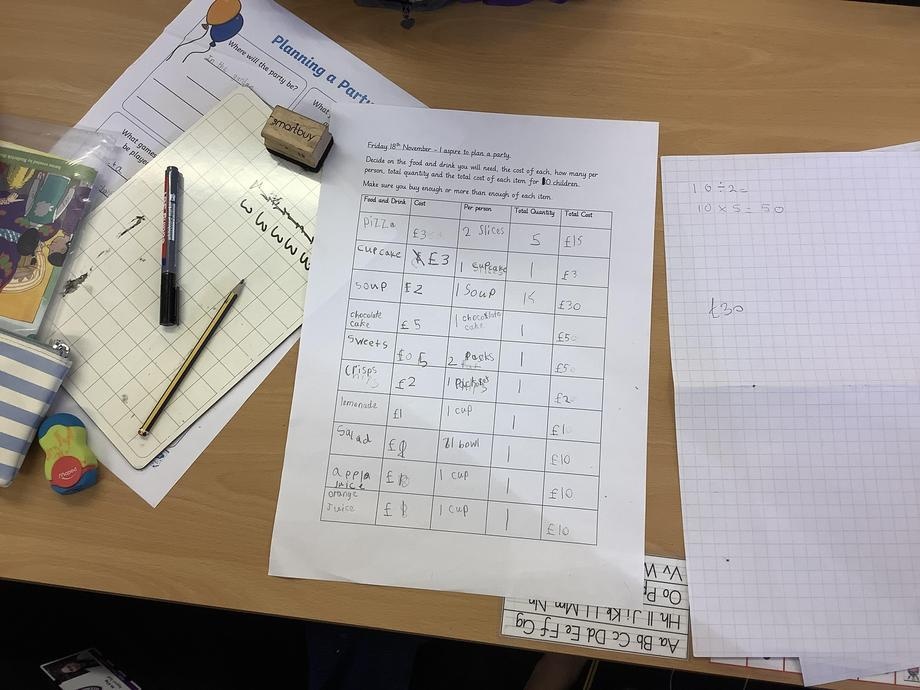 Planning a Party
Where will the party be?
In the
What games
be played
smartbuy
Friday 18th November - I aspire to plan a party.
Decide on the food and drink you will need, the cost of each, how many per
person, total quantity and the total cost of each item for 10 children.
Make sure you buy enough or more than enough of each item.
Food and Drink Cost Per person Total Quantity Total Cost
Pizza £3 2 Slices 5 £15
cupcake £3 1 cupcake 1 £3
soup £2 1 Soup £30
chocolate
cake £5 1 chocolate
cake 1 £5
Sweets £0 5 2 Packs 1 £5
Crisps £2 1 1 £2
lemonade £1 1 cup 1 £10
Salad £ 1 bowl 1 £10
apple
juice £ 1 cup 1 £10
orange
juice £ 1 cup 1 £10
10÷2=
10×5=50
£30
Maped
Aa Bb Cc Dd Ee Ff Gg
Hh Ii Jj Kk Ll Mm Nn
Oo
Vv